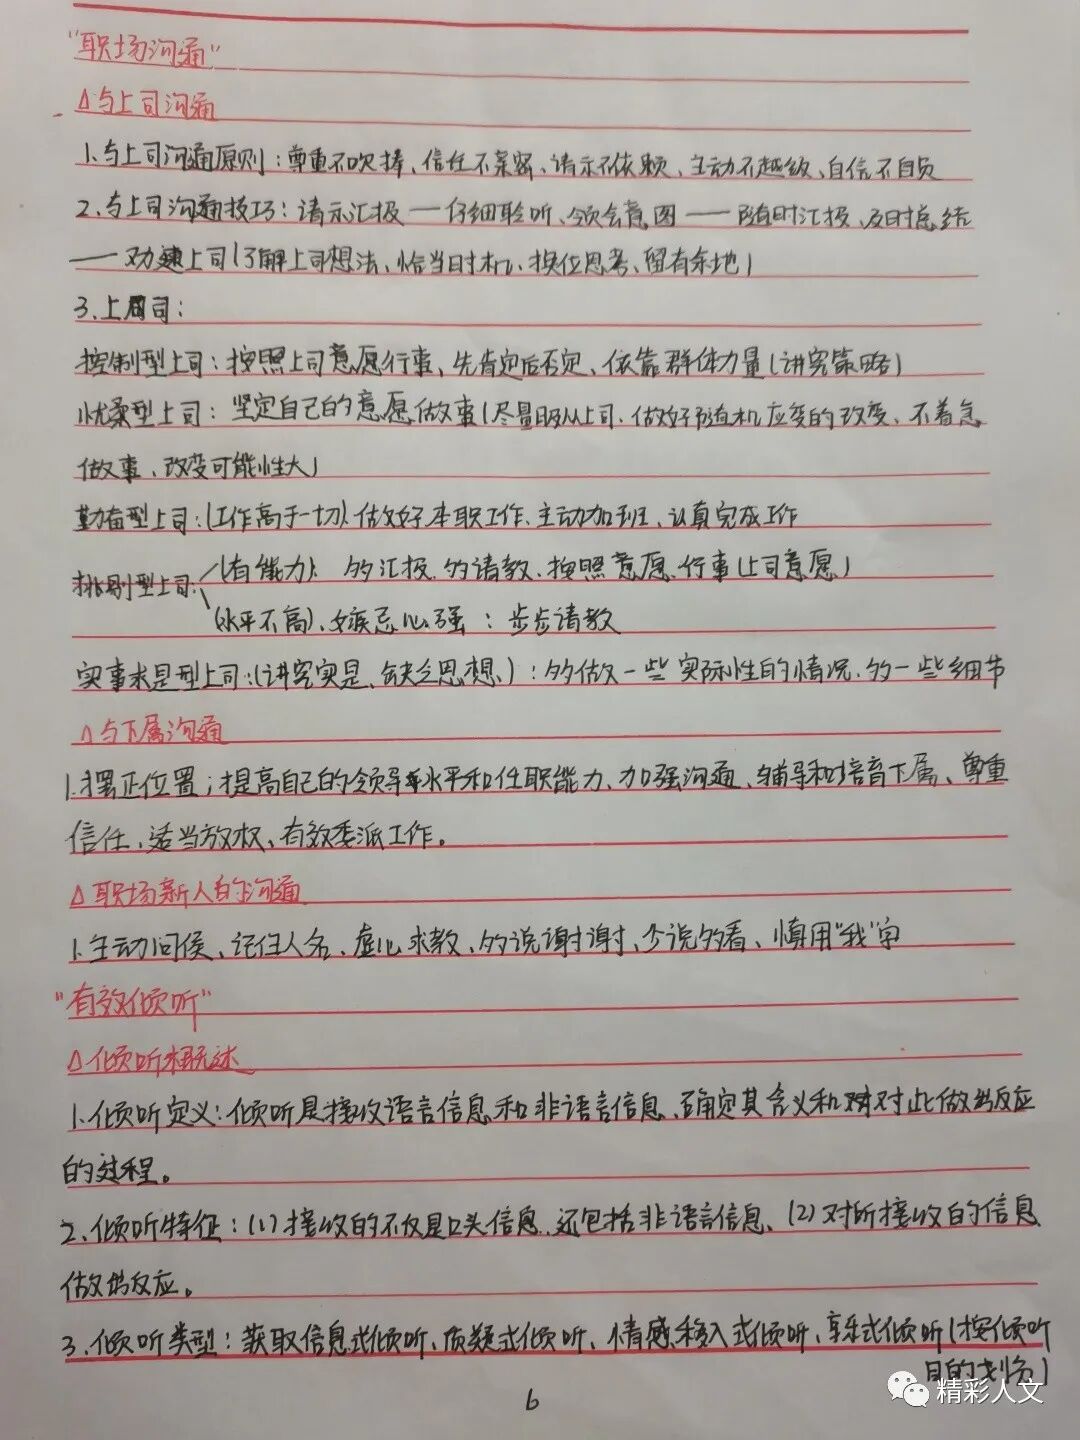 "职场沟通"
Δ与上司沟通
1.与上司沟通原则：尊重不吹捧、信任不亲密、请示不依赖、主动不越级、自信不自负
2.与上司沟通技巧：请示汇报——仔细聆听、领会意图——随时汇报、及时总结
——劝谏上司(了解上司想法、恰当时机、换位思考、留有余地)
3.上司：
控制型上司：按照上司意愿行事，先肯定后否定、依靠群体力量(讲究策略)
优柔型上司：坚定自己的意愿做事(尽量服从上司、做好随机应变的改变、不着急
做事、改变可能性大)
勤奋型上司：(工作高于一切)、做好本职工作、主动加班、认真完成工作
挑剔型上司：(有能力)、多汇报、多请教、按照意愿行事(上司意愿)
(水平不高)、嫉妒心强：步步请教
实事求是型上司：(讲究实是、缺乏思想)：多做一些实际性的情况、多一些细节
Δ与下属沟通
1.摆正位置；提高自己的领导水平和任职能力、加强沟通、辅导和培育下属、尊重
信任、适当放权、有效委派工作。
Δ职场新人的沟通
1.主动问侯、记住人名、虚心求教、多说谢谢、少说多看、慎用"我"字
"有效倾听"
Δ倾听概述
1.倾听定义：倾听是接收语言信息和非语言信息、确定其含义和对此做出反应
的过程。
2.倾听特征：(1)接收的不仅是口头信息、还包括非语言信息、(2)对所接收的信息
做出反应。
3.倾听类型：获取信息式倾听、质疑式倾听、情感移入式倾听、享乐式倾听(按倾听
目的划分)
6
精彩人文